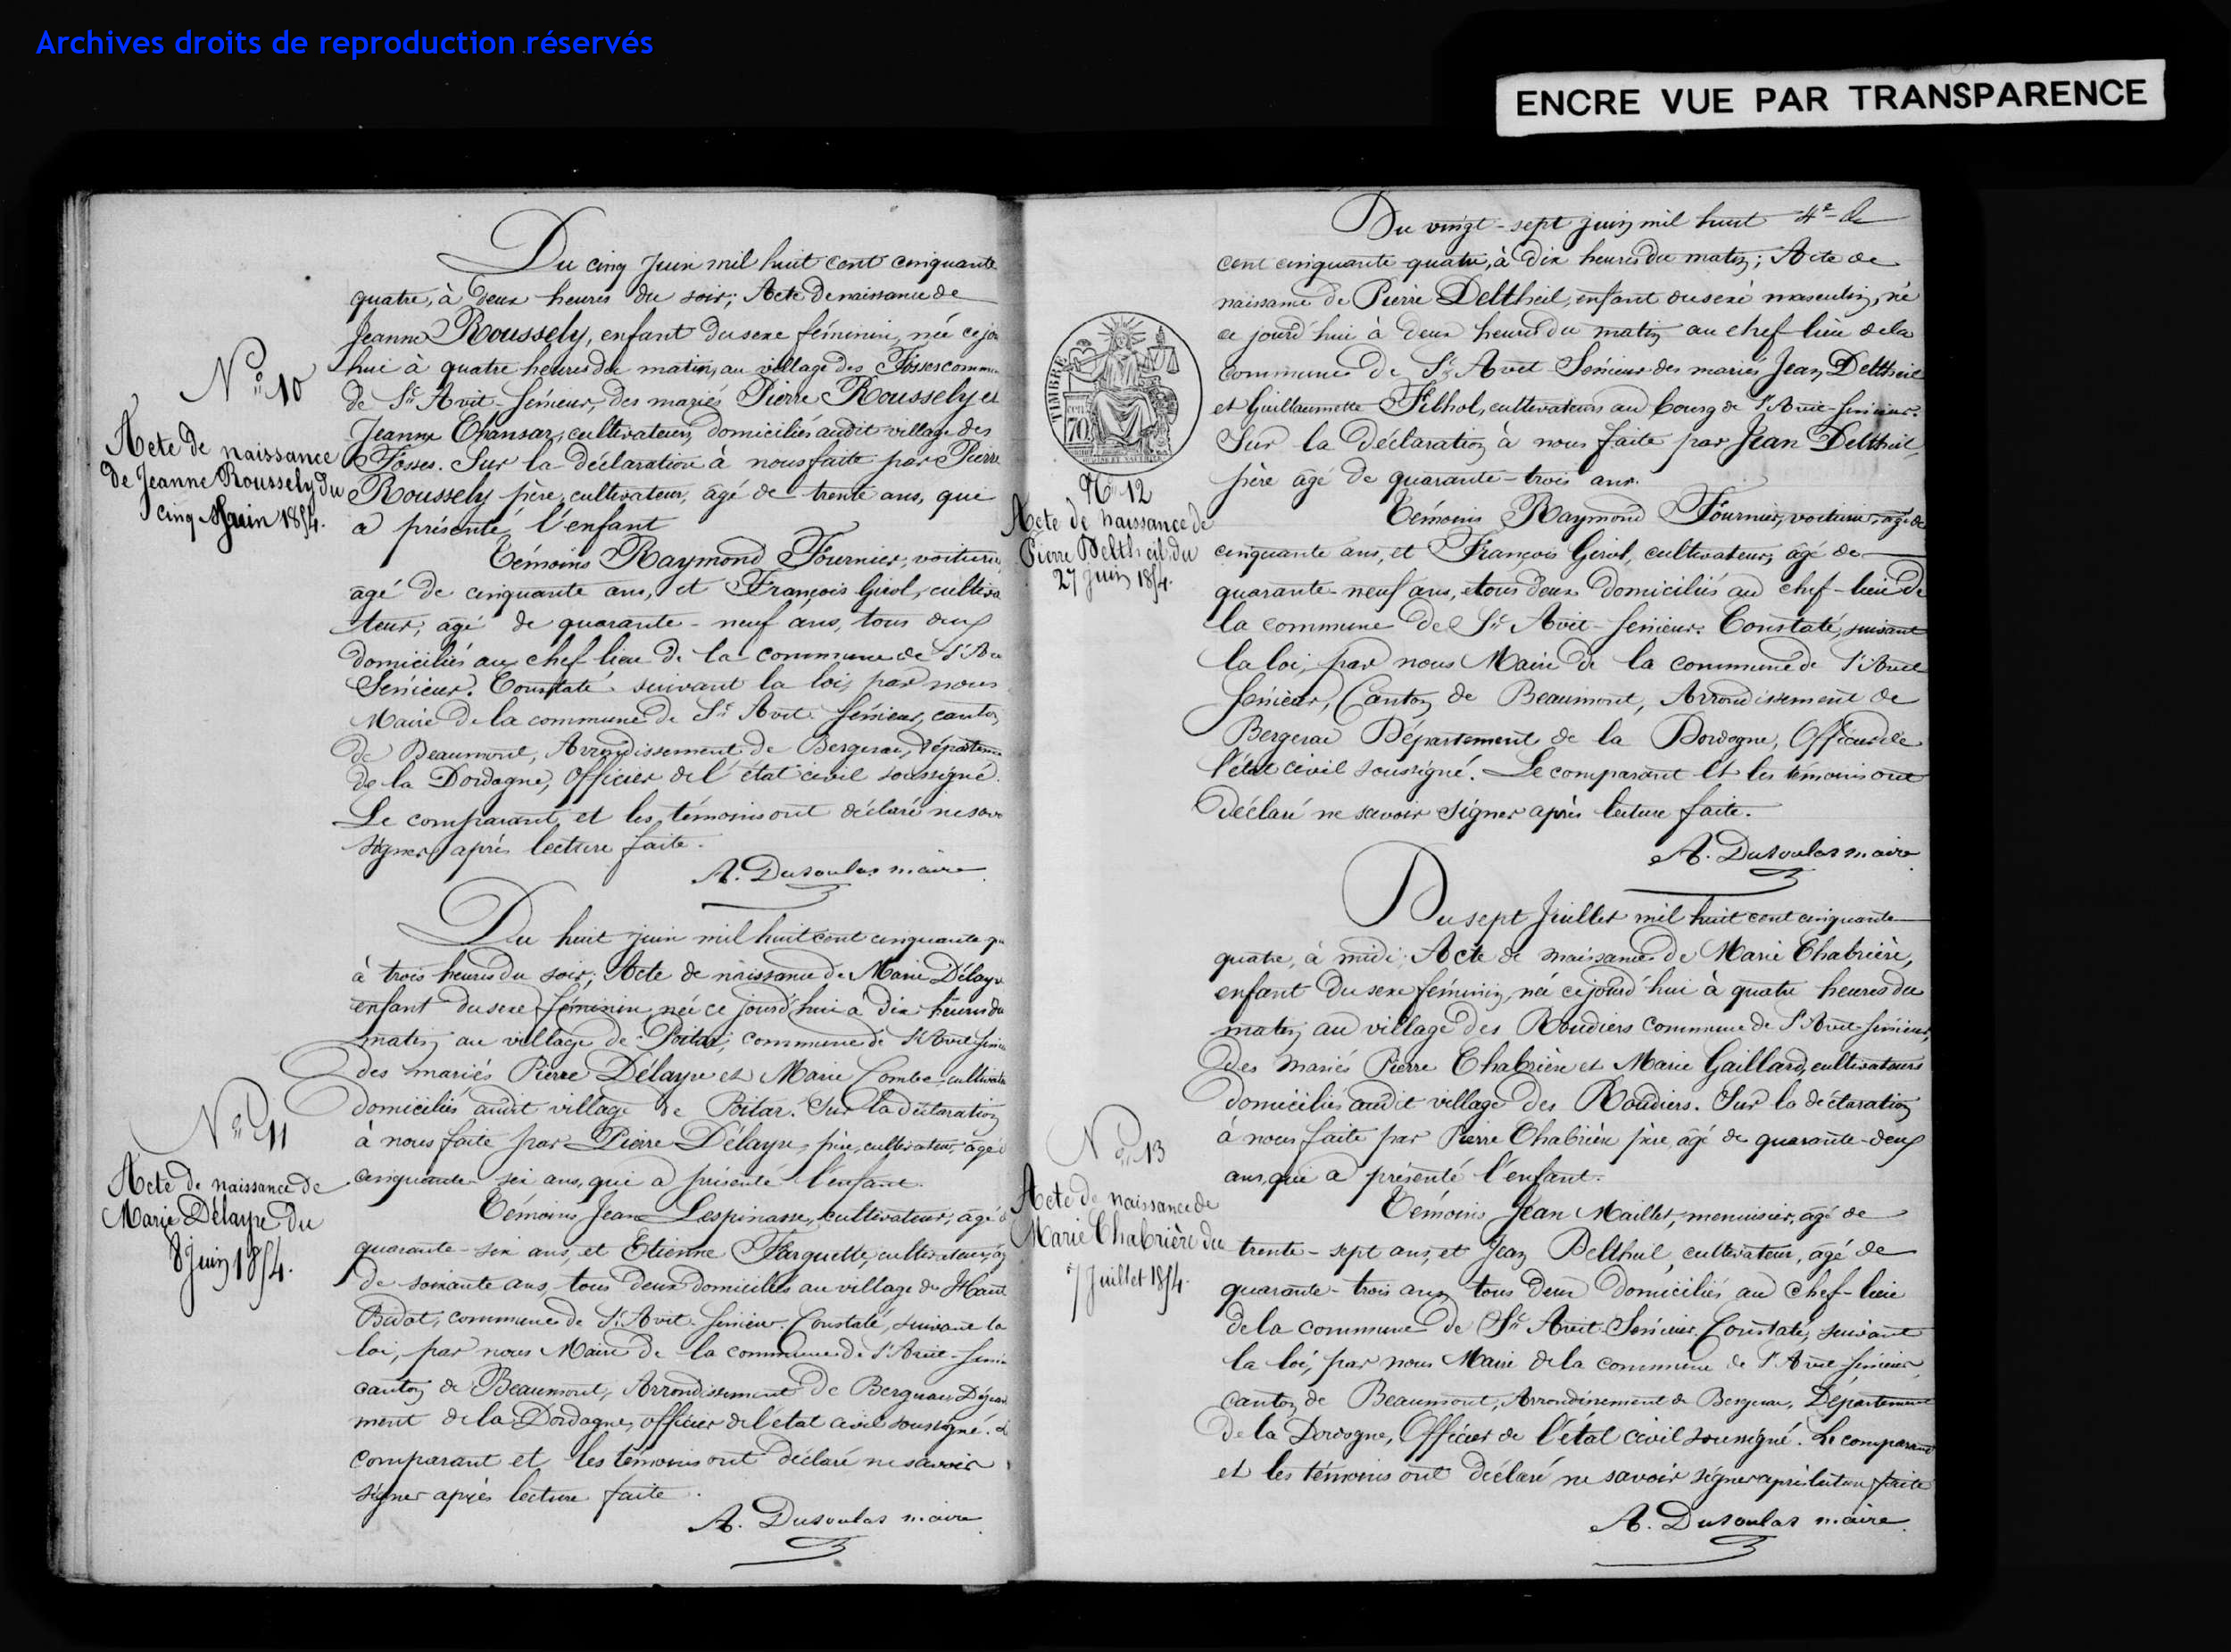 Archives droits de reproduction réservés
ENCRE VUE PAR TRANSPARENCE
Du cinq Juin mil huit cent cinquante
quatre, à deux heures du soir; Acte de naissance de
Jeanne Roussely, enfant du sexe féminin, née ce jo
hui à quatre heures du matin, au village des Fosses commu
de St Avit-Senieur, des mariés Pierre Roussely et
Jeanne Chansar, cultivateurs, domiciliés audit village des
Fosses. Sur la déclaration à nous faite par Pierre
Roussely père, cultivateur, âgé de trente ans, qui
a présenté l'enfant
Témoins Raymond Fournier, voiturier,
agé de cinquante ans, et François Girol, cultiva
teur, âgé de quarante-neuf ans, tous deux
domiciliés au chef-lieu de la commune de St Av
Senieur. Constaté suivant la loi, par nous
Maire de la commune de St Avit-Senieur, canton
de Beaumont, Arrondissement de Bergerac, Départeme
de la Dordogne, Officier de l'état civil soussigné.
Le comparant et les témoins ont déclaré ne savo
signer après lecture faite.
A. Dusoulas maire
No 10
Acte de naissance
de Jeanne Roussely du
cinq Juin 1854.
Du huit juin mil huit cent cinquante qu
à trois heures du soir; Acte de naissance de Marie Délayre
enfant du sexe féminin, née ce jourd'hui à dix heures du
matin au village de Poitar, commune de St Avit-Senieu
des mariés Pierre Délayre et Marie Combe, cultivate
domiciliés audit village de Poitar. Sur la déclaration
à nous faite par Pierre Délayre, père, cultivateur, âgé d
cinquante-six ans, qui a présenté l'enfant.
Témoins Jean Lespinasse, cultivateur, âgé d
quarante-six ans, et Etienne Farguette, cultivateur, âg
de soixante ans, tous deux domiciliés au village du Haut
Bidot, commune de St Avit-Senieur. Constaté, suivant la
loi, par nous Maire de la commune de St Avit-Senie
canton de Beaumont, Arrondissement de Bergerac, Dépar
ment de la Dordogne, officier de l'état civil soussigné. L
comparant et les témoins ont déclaré ne savoir
signer après lecture faite.
A. Dusoulas maire
No 11
Acte de naissance de
Marie Délayre du
8 Juin 1854.
Du vingt-sept juin mil huit 4e
cent cinquante quatre, à dix heures du matin; Acte de
naissance de Pierre Deltheil, enfant du sexe masculin, né
ce jourd'hui à deux heures du matin au chef lieu de la
commune de St Avit-Senieur des mariés Jean Deltheil
et Guillaumette Filhol, cultivateurs au bourg de St Avit-Senieur.
Sur la déclaration à nous faite par Jean Deltheil,
père âgé de quarante-trois ans.
Témoins Raymond Fournier, voiturier, agé de
cinquante ans, et François Girol, cultivateur, âgé de
quarante-neuf ans, et tous deux domiciliés au chef-lieu de
la commune de St Avit-Senieur. Constaté, suivant
la loi, par nous Maire de la commune de St Avit
Senieur, Canton de Beaumont, Arrondissement de
Bergerac Département de la Dordogne, Officier de
l'état civil soussigné. Le comparant et les témoins ont
déclaré ne savoir signer après lecture faite.
A. Dusoulas maire
TIMBRE
70
No 12
Acte de naissance de
Pierre Deltheil du
27 Juin 1854.
Du sept Juillet mil huit cent cinquante
quatre, à midi; Acte de naissance de Marie Chabrière,
enfant du sexe féminin, née ce jourd'hui à quatre heures du
matin, au village des Roudiers commune de St Avit-Senieur,
des mariés Pierre Chabrière et Marie Gaillard, cultivateurs
domiciliés audit village des Roudiers. Sur la déclaration
à nous faite par Pierre Chabrière père, âgé de quarante-deux
ans, qui a présenté l'enfant.
Témoins Jean Maillet, menuisier, âgé de
trente-sept ans, et Jean Deltheil, cultivateur, âgé de
quarante-trois ans, tous deux domiciliés au chef-lieu
de la commune de St Avit-Senieur. Constaté, suivant
la loi, par nous Maire de la commune de St Avit-Senieur,
canton de Beaumont, Arrondissement de Bergerac, Département
de la Dordogne, Officier de l'état civil soussigné. Le comparant
et les témoins ont déclaré ne savoir signer après lecture faite
A. Dusoulas maire
No 13
Acte de naissance de
Marie Chabrière du
7 Juillet 1854.